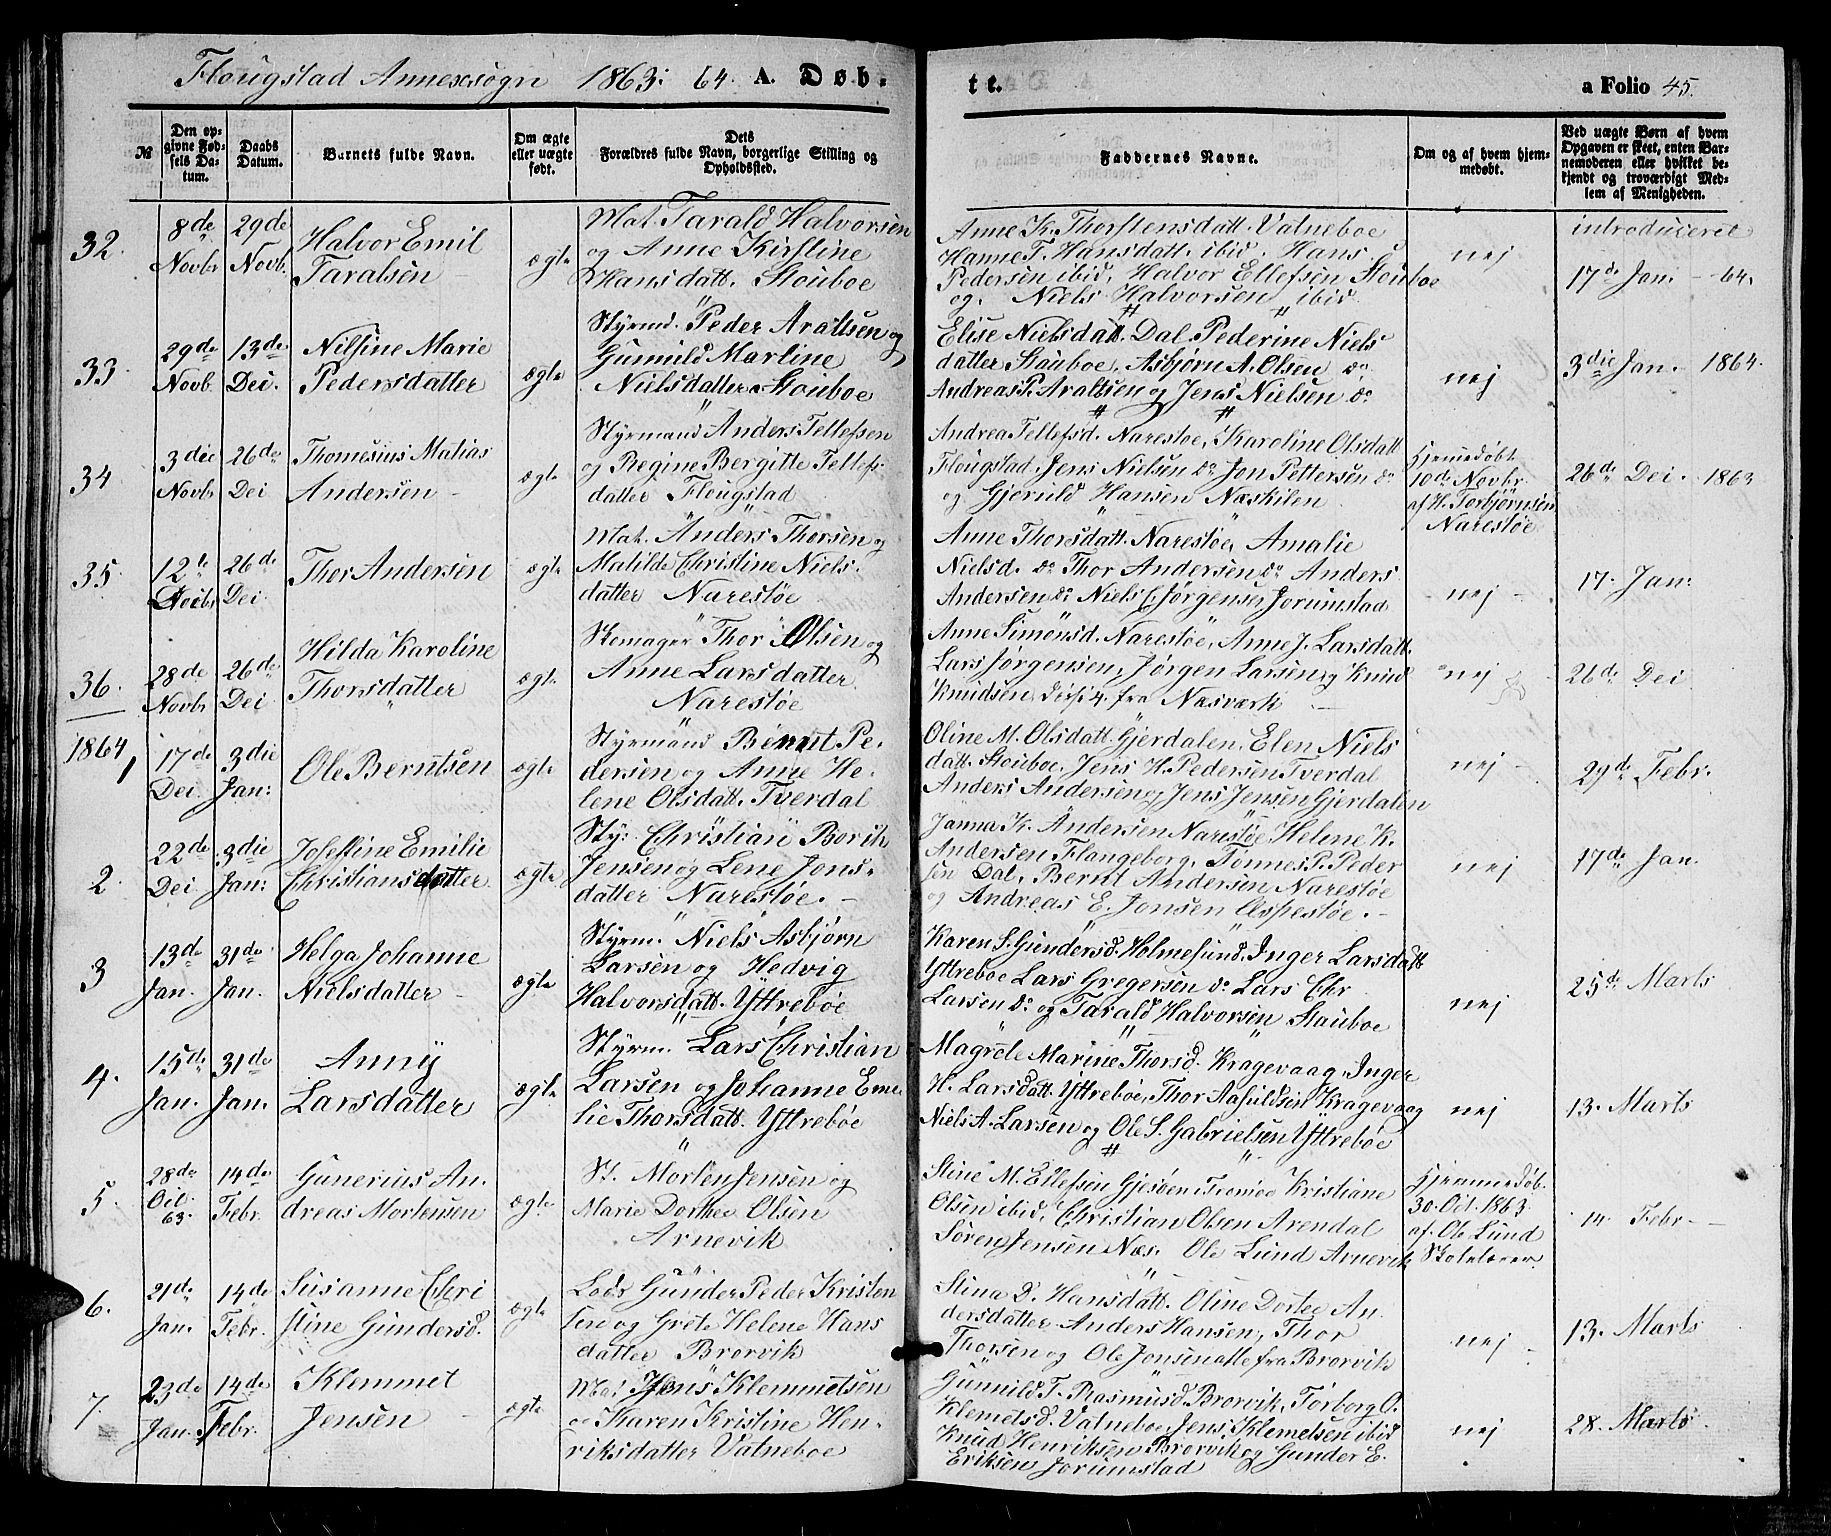 Flougstad Annexsogn 1863: 64. A. Døb-
tt. a Folio 45.
№
Den opgivne Fødsels Datum.
Daabs Datum.
Barnets fulde Navn.
Om ægte eller uægte født.
Dets Forældres fulde Navn, borgerlige Stilling og Opholdssted.
Faddernes Navne.
Om og af hvem hjemmedøbt.
Ved uægte Børn af hvem Opgaven er skeet, enten Barnemoderen eller hvilket bekjendt og troværdigt Medlem af Menigheden.
32.
8de Novbr
29de Novb.
Halvor Emil
Taralsen
ægte
Mat. Tarald Halvorsen
og Anne Kirstine
Hansdatt. Stouboe
Anne K. Thorstensdatt. Vatneboe
Hanne T. Hansdatt. ibid. Hans
Pedersen ibid. Halvor Ellefsen Stouboe
og Niels Halvorsen ibid.
nej
introduceret
17de Jan. - 64.
33.
29de Novb.
13de Dei.
Nilsine Marie
Pedersdatter
ægte
Styrmd. Peder Araltsen og
Gunuld Martine
Nielsdatter Stouboe
Elise Nielsdatt. Dal. Pederine Niels
datter Stauboe, Asbjørn A. Olsen do
Andreas P. Araltsen og Jens Nielsen do
nej
3die Jan. - 1864.
34
3die Novbr
26de Dei
Thomesius Matias
Andersen
ægte
Styrmand Anders Tellefsen
og Regine Bergitte Tellefs-
datter Flougstad
Andrea Tellefsd. Narestøe, Karoline Olsdatt
Flougstad, Jens Nielsen do Jon Pettersen do
og Gjeruld Hansen Næskilen
Hjemmedøbt
10de Novbr.
af H. Torbjørnsen
Narestøe
26de Dei. - 1863
35.
12te
26de Dei
Thor Andersen
ægte
Mat. Anders Thorsen og
Matilde Christine Niels-
datter Narestøe
Anne Thorsdatt. Narestøe, Amalie
Nielsd. do Thor Andersen do Anders
Andersen do Niels C. Jørgensen Jorumstad
nej
17. Jan:
36.
28de Novbr
26de Dei
Hilda Karoline
Thorsdatter
ægte
Skomager Thor Olsen og
Anne Larsdatter
Narestøe
Anne Simonsd. Narestøe, Anne J. Larsdatt.
Lars Jørgensen, Jørgen Larsen og Knud
Knudsen, disse 4 fra Næsværk
nej
26de Dei
1864
1
17de Dei.
3die Jan:
Ole Berntsen
ægte
Styrmand Bernt Pe-
dersen og Anne He-
lene Olsdatt. Tverdal
Oline M. Olsdatt. Gjerdalen, Elen Niels
datt. Stouboe, Jens H. Pedersen Tverdal
Anders Andersen og Jens Jensen Gjerdalen
nej
29de Febr.
2
22de Dei
3die Jan:
Josefine Emilie
Christiansdatter
ægte
Sty: Christian Borik
Jensen og Lene Jons-
datter Narestøe.
Janna K. Andersen Narestøe, Helene K.
Andersen Flangeborg, Tønnes P. Peder
sen Dal, Bernt Andersen Narestøe
og Andreas E. Jonsen Aspestøe.
nej
17de Jan.
3
13de Jan.
31de Jan.
Helga Johanne
Nielsdatter
ægte
Styrm. Niels Asbjørn
Larsen og Hedvig
Halvorsdatt. Yttrebøe
Karen S. Gundersd. Holmesund, Inger Larsdatt
Yttreboe Lars Gregersen do Lars Chr
Larsen do og Tarald Halvorsen Stauboe
nej
25de Marts
4.
15de Jan.
31de Jan.
Anny
Larsdatter
ægte
Styrm. Lars Christian
Larsen og Johanne Eme
lie Thorsdatt. Yttrebøe
Magrete Marine Thorsd. Kragevaag, Inger
H. Larsdatt. Yttrebøe, Thor Aasuldsen Kragevaag
Niels A. Larsen og Ole S. Gabrielsen Yttrebøe
nej
13. Marts
5.
28de Oct. 63.
14de Febr.
Gunerius An-
dreas Mortensen
ægte
St. Morten Jensen og
Marie Dorthee Olsen
Arnevik
Stine M. Ellefsen Gjesøen, Tromøe Kristiane
Olsen ibid, Christian Olsen Arendal
Søren Jensen Næs. Ole Lund Arnevik
Hjemmedøb.
30. Oct. 1863
af Ole Lund
Skolelærer
14 Febr.
6.
21de Jan.
14de Febr.
Susanne Chri
stine Gundersd.
ægte
Lods Gunder Peder Kristen
sen og Grete Helene Hans
datter Brorvik
Stina D. Hansdatt. Oline Dortee An
dersdatter Anders Hansen, Thor
Thorsen og Ole Jonsen alle fra Brorvik
nej
13. Marts
7.
23de Jan.
14de Febr.
Klemmet
Jensen
ægte
Mat Jens Klemmetsen
og Karen Kristine Hen-
riksdatter Vatneboe
Gunnild T. Rasmusd. Brorvik, Torborg O.
Klemetsd. Vatneboe, Jens Klemetsen ibid
Knud Henriksen Brorvik og Gunder E.
Eriksen Jorumstad
nej
28. Marts.